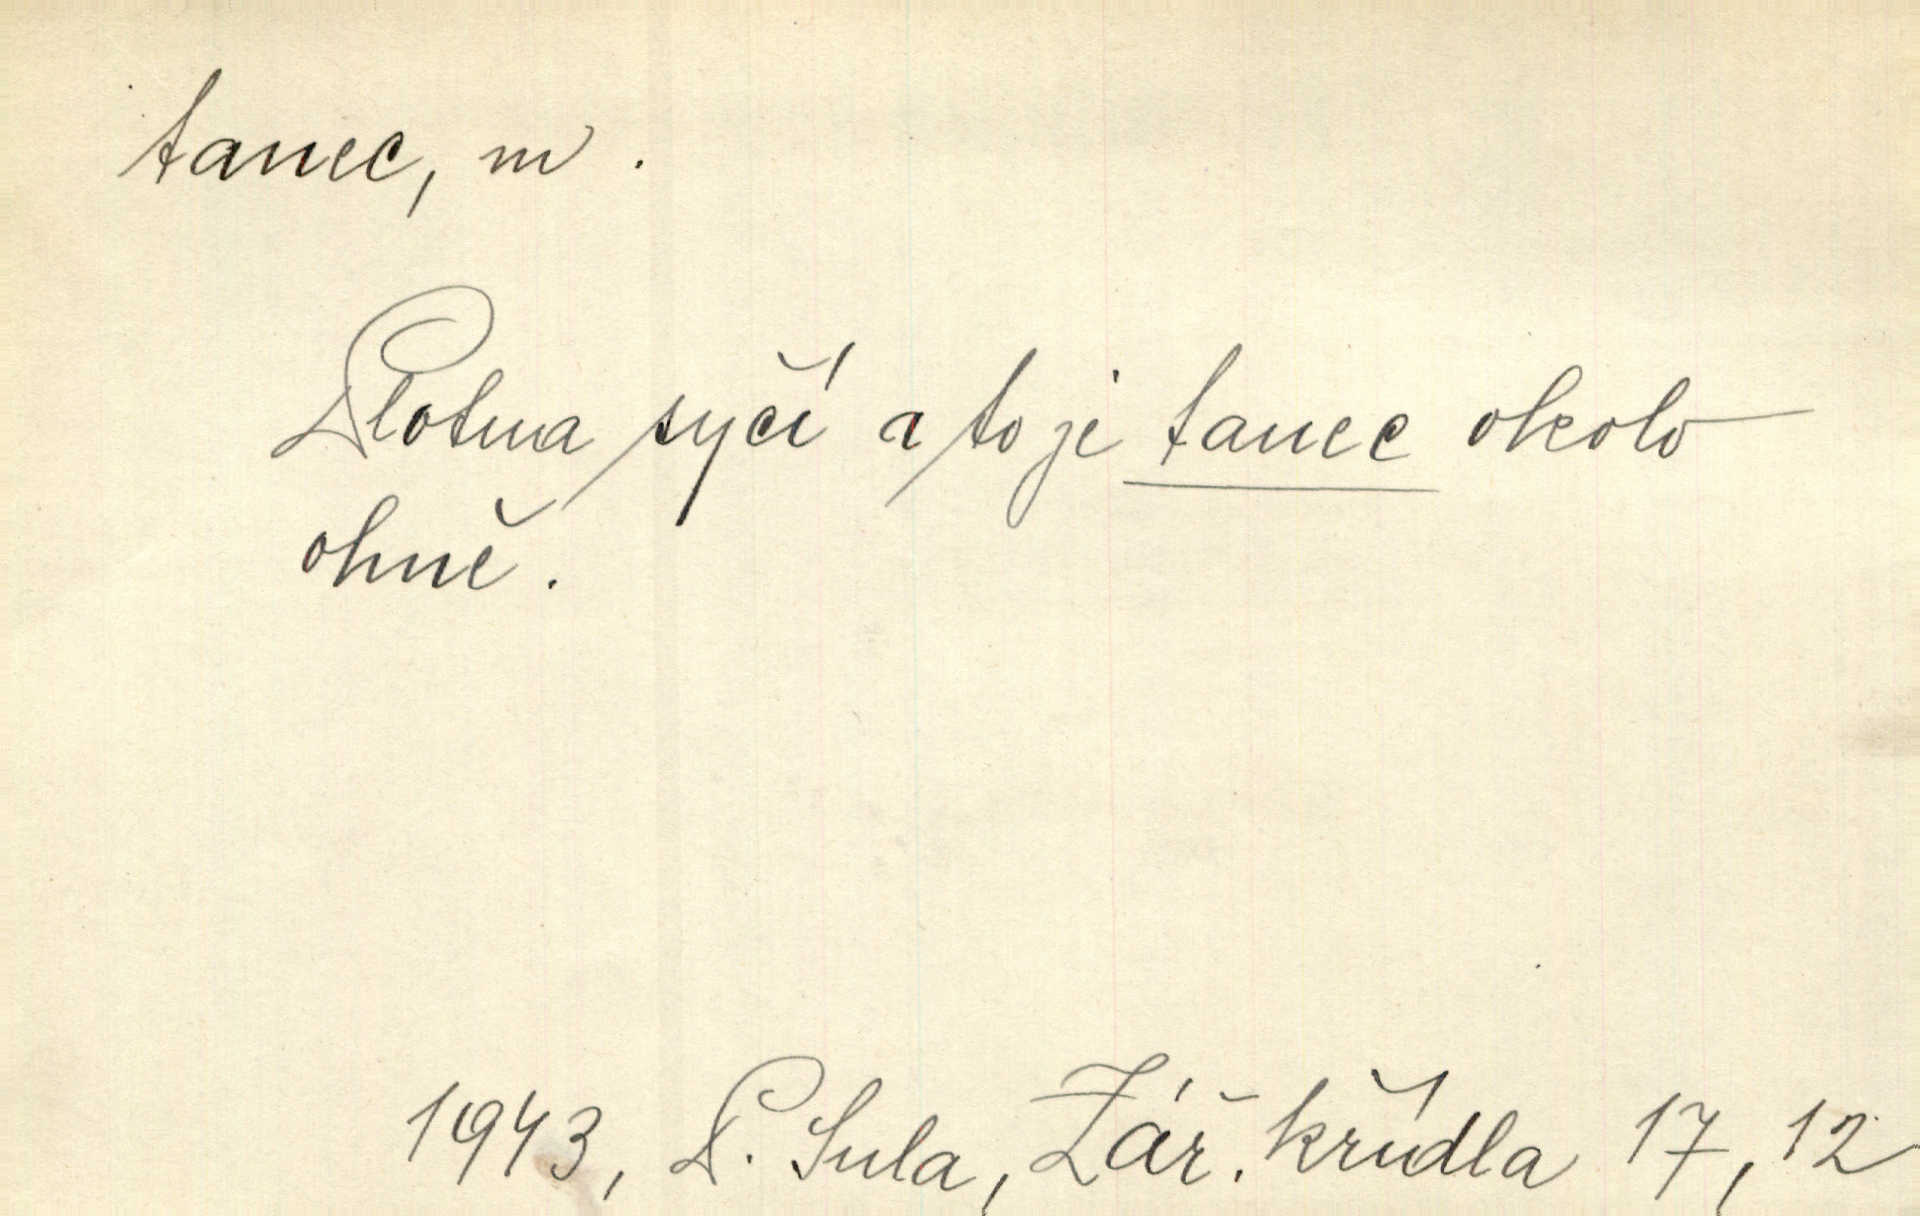 tanec, m.
Plotna syčí a to je tanec okolo
ohně.
1943, P. Sula, Zář. křídla 17, 12